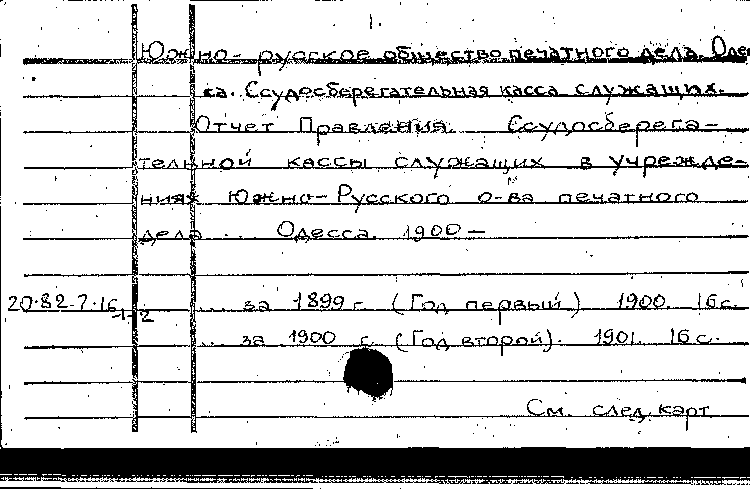 1.
Южно-русское общество печатного дела. Одес
са. Ссудосберегательная касса служащих.
Отчет Правления Ссудосберега-
тельной кассы служащих в учрежде-
ниях Южно-Русского о-ва печатного
дела ... Одесса. 1900 —
20.82.7.16 1-2 ... за 1899 г. (Год первый) 1900. 16 с.
... за 1900 г. (Год второй). 1901. 16 с.
См. след. карт.